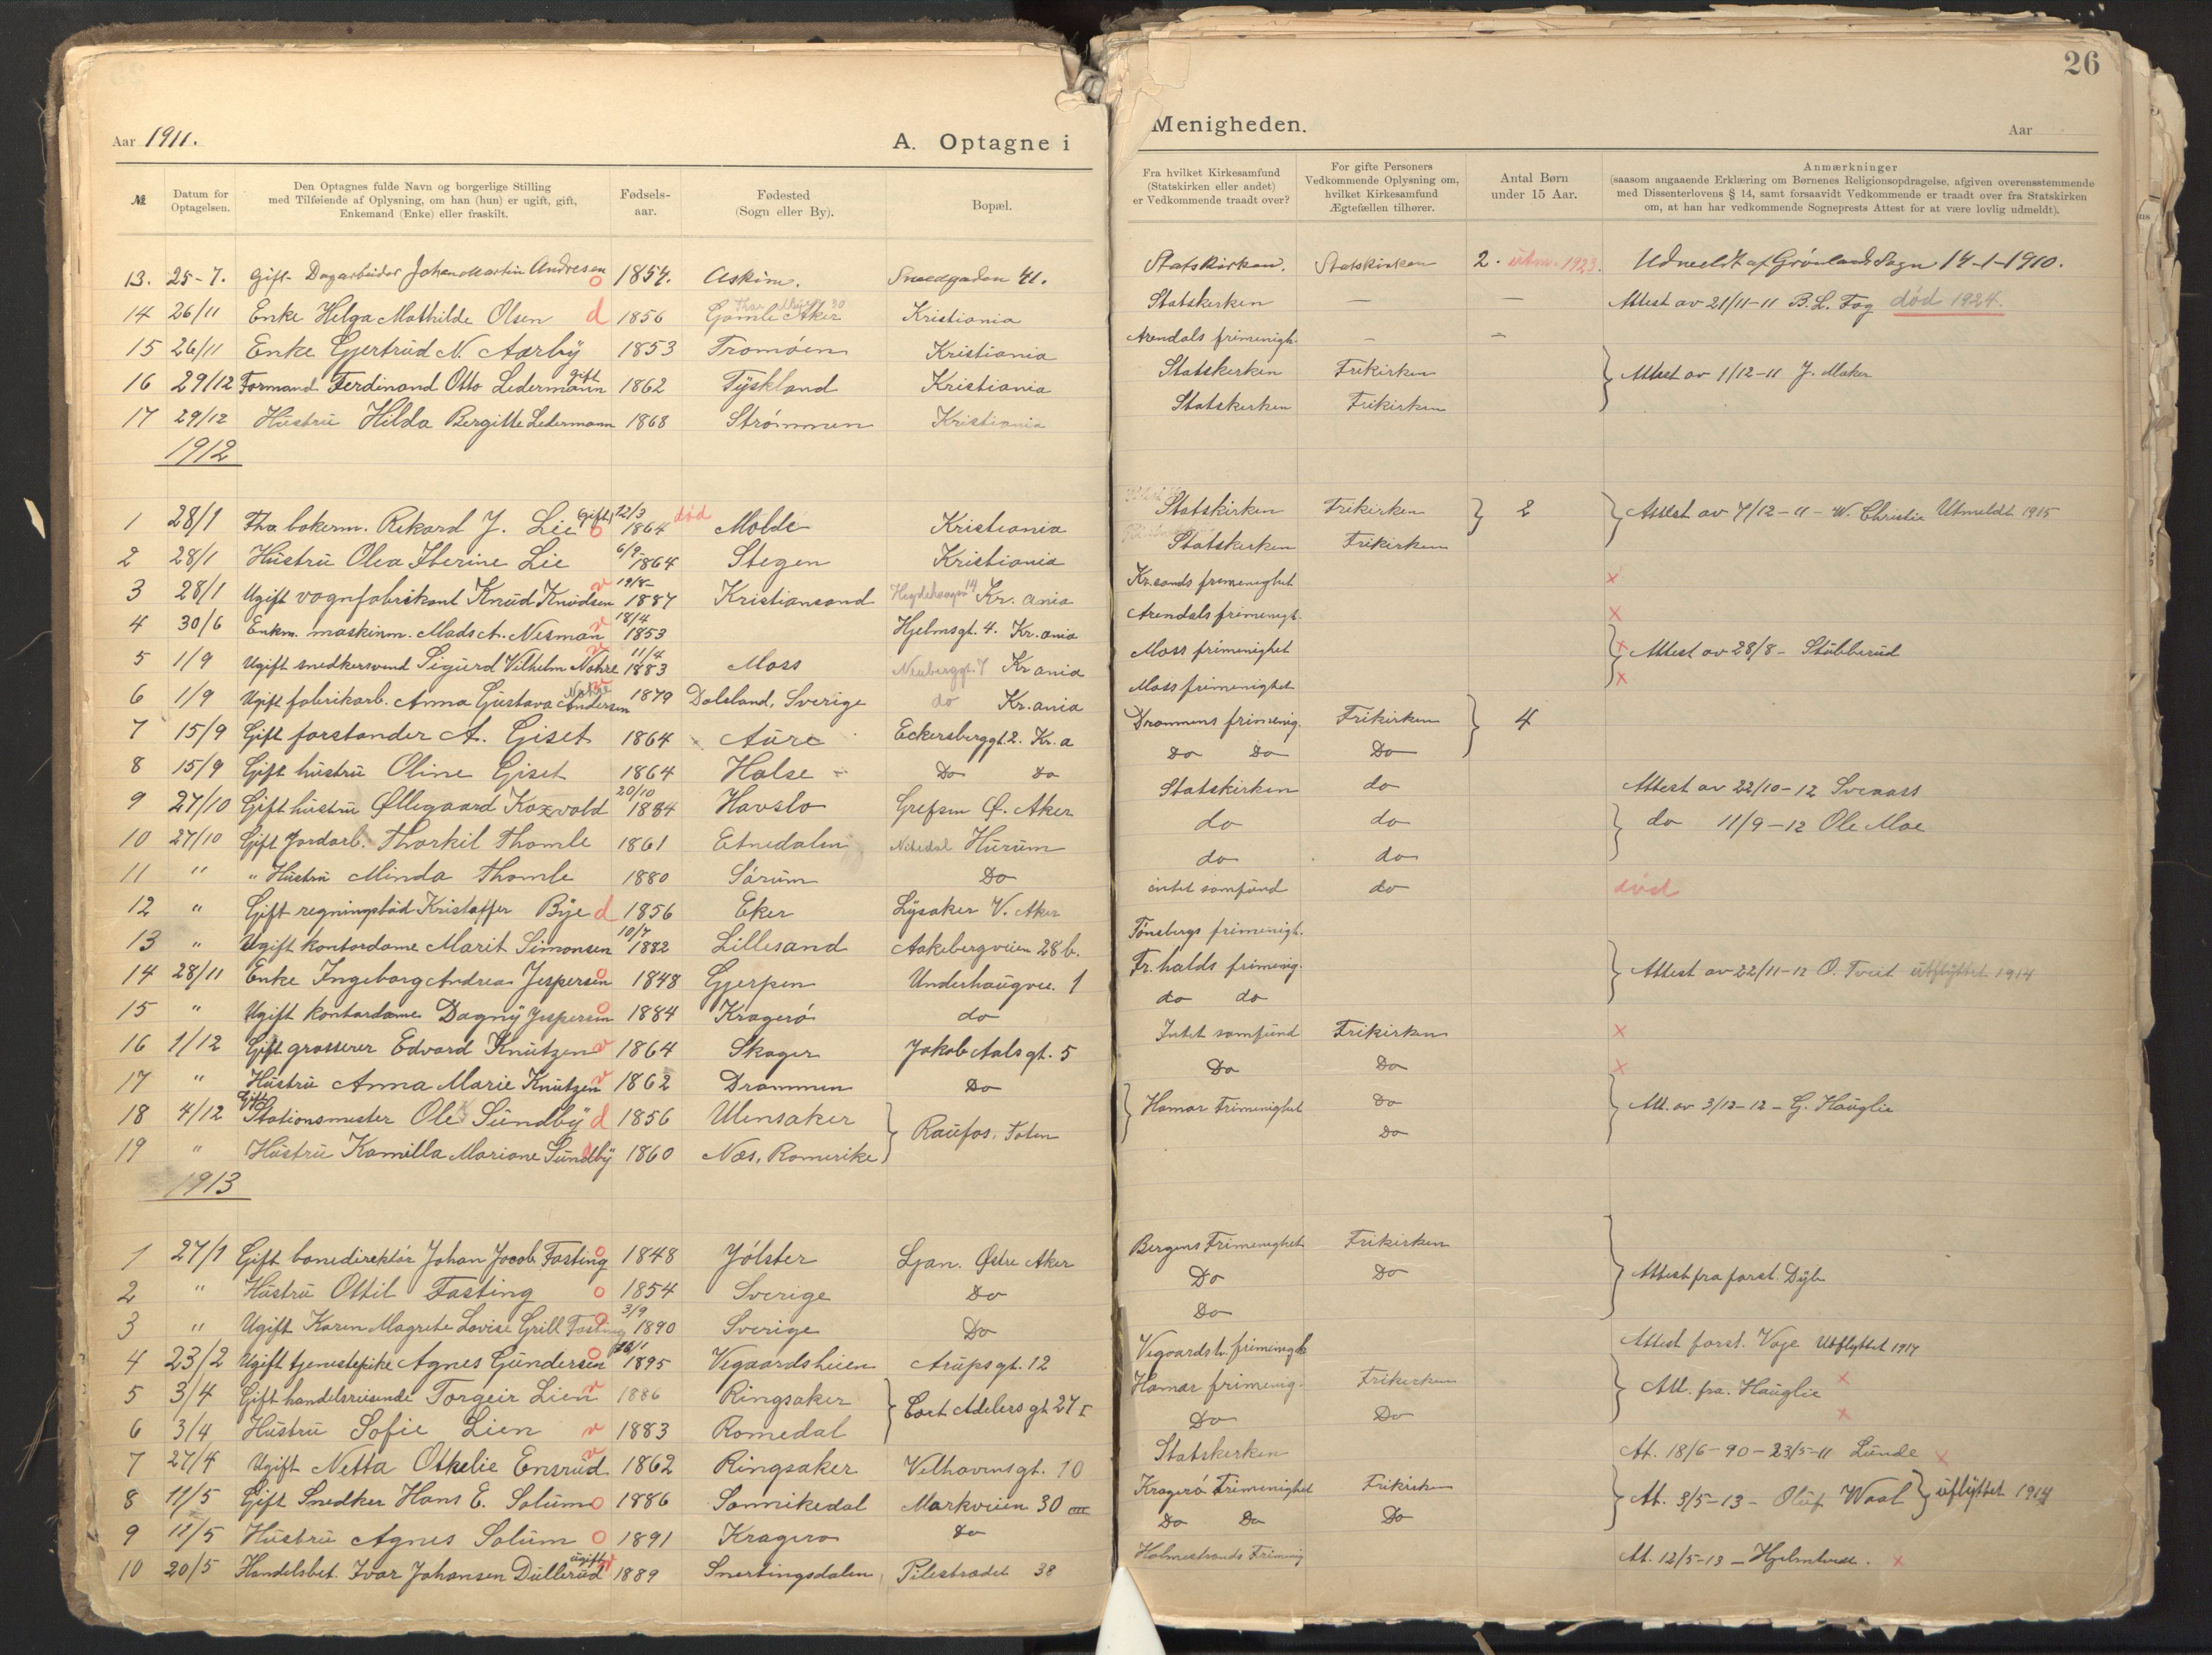 26
Aar 1911.
A. Optagne i Menigheden.
Aar
№
Datum for Optagelsen.
Den Optagnes fulde Navn og borgerlige Stilling med Tilføiende af Oplysning, om han (hun) er ugift, gift, Enkemand (Enke) eller fraskilt.
Fødsels-aar.
Fødested (Sogn eller By).
Bopæl.
Fra hvilket Kirkesamfund (Statskirken eller andet) er Vedkommende traadt over?
For gifte Personers Vedkommende Oplysning om, hvilket Kirkesamfund Ægtefællen tilhører.
Antal Børn under 15 Aar.
Anmærkninger (saasom angaaende Erklæring om Børnenes Religionsopdragelse, afgiven overensstemmende med Dissenterlovens § 14, samt forsaavidt Vedkommende er traadt over fra Statskirken om, at han har vedkommende Sogneprests Attest for at være lovlig udmeldt).
13. 25-7. Gift Dagarbeider Johan Martin Andresen o 1854. Askim. Smedgaden 41. Statskirken. Statskirken 2. utm. 1923. Udmeldt af Grønlands Sogn 14-1-1910.
14 26/11 Enke Helga Mathilde Olsen d 1856 Gamle Aker Kristiania Statskirken — — Attest av 21/11-11 B. L. Fog død 1924.
15 26/11 Enke Gjertrud N. Aarby 1853 Tromøen Kristiania Arendals frimenigh. — —
16 29/12 Formand Ferdinand Otto Ledermann gift 1862 Tyskland Kristiania Statskirken Frikirken } Attest av 1/12-11 J. Maker
17 29/12 Hustru Hilda Bergitte Ledermann 1868 Strømmen Kristiania Statskirken Frikirken
1912
1 28/1 Fha bokerm. Rikard J. Lie (gift) o 12/3 1864 død Molde Kristiania Statskirken Frikirken } 2 } Attest av 7/12-11 - W. Christie Utmeldt 1915
2 28/1 Hustru Olea Iberine Lie 6/9 1864 Stegen Kristiania Statskirken Frikirken
3 28/1 Ugift vognfabrikant Knud Knudsen v 19/8- 1887 Kristiansand Hegdehaugen 14 Kr. ania Kr.sands frimenighet x
4 30/6 Enkm. maskinm. Mads A. Nisman v 18/4 1853 Hjelmsgt. 4. Kr. ania Arendals frimenigt. x
5 1/9 Ugift snedkersvend Sigurd Vilhelm Nohre v 11/4 1883 Moss Neuberggt. 7 Kr ania Moss frimenighet } x Attest av 28/8 - Stubberud
6 1/9 Ugift fabrikarb. Anna Gustava Andersen Nohre v 1879 Dalsland, Sverige do Kr. ania Moss frimenighet x
7 15/9 Gift forstander A. Giset 1864 x Aure Eckersberggt 2. Kr. a Drammens frimenig. Frikirken } 4
8 15/9 Gift hustru Oline Giset 1864 Halse Do Do Do Do Do
9 27/10 Gift hustru Øllegaard Kaxvold 20/10 1884 Havslo Grefsen Ø. Aker Statskirken do Attest av 22/10-12 Sveaass
10 27/10 Gift Jordarb. Thorkil Thomle 1861 Etnedalen Nitedal Hurum do do } do 11/9-12 Ole Moe
11 " " Hustru Minda Thomle 1880 Sørum Do do do
12 " Gift regningsbud Kristoffer Bye d 1856 Eker Lysaker V. Aker intet samfund do død
13 " Ugift kontordame Marit Simonsen 10/7 1882 Lillesand Aakebergveien 28 b. Tönsbergs frimenigh.
14 28/11 Enke Ingeborg Andrea Jespersen o 1848 Gjerpen Underhaugvei. 1 Fr. halds frimenig. } Attest av 22/11-12 O. Tveit utflyttet 1914
15 " Ugift kontordame Dagny Jespersen o 1884 Kragerø do do do
16 1/12 Gift grosserer Edvard Knutzen v 1864 Skager Jakob Aals gt. 5 Intet samfund Frikirken x
17 " Hustru Anna Marie Knutzen v 1862 Drammen Do Do Do x
18 4/12 Gift Stationsmester Ole Sundby d 1856 Ulensaker } Raufos, Toten } Hamar Frimenighet Do } Att. av 3/12-12 - G. Hauglie
19 " Hustru Kamilla Mariane Sundby d 1860 Næs, Romerike Do
1913
1 27/1 Gift banedirektør Johan Jacob Fasting o 1848 Jølster Ljan. Østre Aker Bergens Frimenighet Frikirken } Attest fra forst. Dyb
2 " Hustru Ottil Fasting o 1854 Sverige Do Do Do
3 " Ugift Karen Magrete Lovise Grill Fasting o 3/9 1890 Sverige Do Do
4 23/2 Ugift tjenestepike Agnes Gundersen o 1895 Vegaardsheien Arups gt. 12 Vegaardsh. frimenigh. Attest forst. Vaje Utflyttet 1917
5 3/4 Gift handelsreisende Torgeir Lien v 1886 Ringsaker } Cort Adelers gt 27 I Hamar frimenig. Frikirken } Att. fra. Hauglie x
6 3/4 Hustru Sofie Lien v 1883 Romedal Do Do x
7 27/4 Ugift Netta Othelie Ensrud v 1862 Ringsaker Velhavensgt. 10 Statskirken At. 18/6-90-23/5-11 Lunde x
8 11/5 Gift Snedker Hans E. Solum o 1886 Sannikedal Markveien 30 III Kragerø Frimenighet Frikirken } At. 9/5-13 - Oluf Waal } utflyttet 1914
9 11/5 Hustru Agnes Solum o 1891 Kragerø Do Do Do Do
10 20/5 Handelsbet. Ivar Johansen Dullerud ugift v 1889 Snertingsdalen Pilestrædet 38 Holmestrands Frimenig At. 12/5-13 - Hjelmtvedt. x